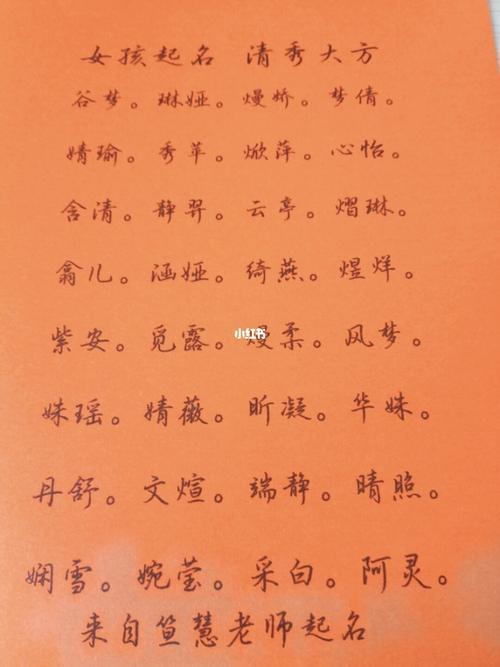 女孩起名 清秀大方
谷梦。琳娅。熳娇。梦倩。
婧瑜。秀苹。焮萍。心怡。
含清。静羿。云亭。熠琳。
翕儿。涵娅。绮燕。煜烊。
紫安。觅露。熳柔。风梦。
小红书
姝瑶。婧薇。昕凝。华姝。
丹舒。文煊。端静。晴照。
娴雪。婉莹。采白。阿灵。
来自笪慧老师起名